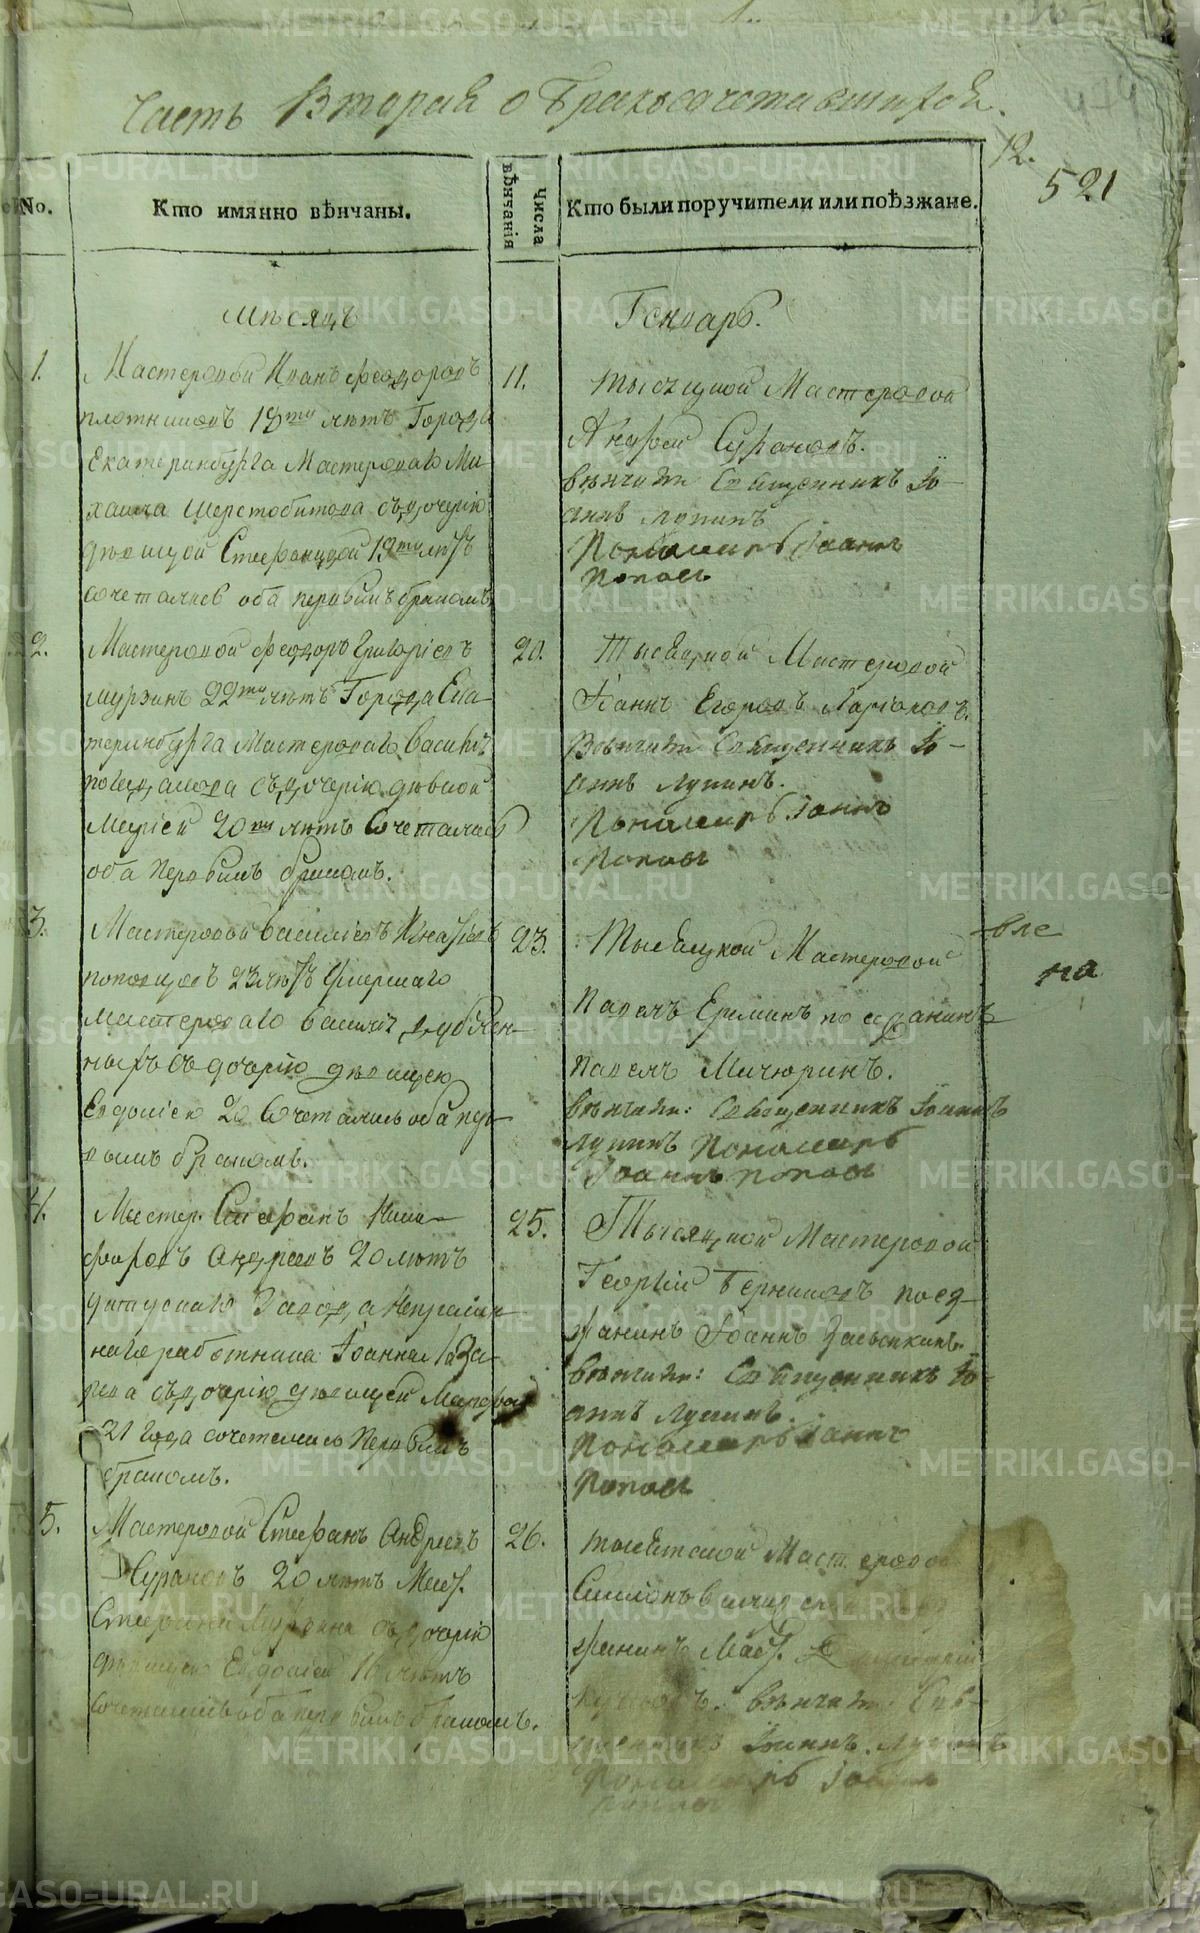 Часть Вторая о Бракосочетавшихся.
12.
521
No.
Кто имянно вѣнчаны.
Числа вѣнчанія
Кто были поручители или поѣзжане.
Мѣсяцъ
Генварь.
1.
Мастеровой Иванъ Феодоровъ
плотниковъ 18ти лѣтъ Города
Екатеринбурга Мастероваго Ми-
хаила Шерстобитова съ дочерію
дѣвицой Стефанидой 19ти лѣтъ
сочетались оба первымъ бракомъ
11.
Тысяцкой Мастеровой
Андрей Сурановъ.
вѣнчали Священникъ Iо-
аннъ Лупинъ
Пономарь Iоаннъ
Поповъ
2.
Мастеровой Феодоръ Григоріевъ
мурзинъ 22ти лѣтъ Города Ека-
теринбурга Мастероваго Василія
съ дочерію дѣвкой
Маріей 20ти лѣтъ Сочетались
оба Первымъ бракомъ.
20.
Тысяцкой Мастеровой
Iоаннъ Егоровъ Ларіоновъ.
Вѣнчали Священникъ Iо-
аннъ Лупинъ.
Пономарь Iоаннъ
Поповъ
3.
Мастеровой Василій Игнатьевъ
23 лѣтъ
мастероваго Василія Дубрен-
ныхъ съ дочерію дѣвицею
Евдокіею 20 Сочетались оба пер-
вымъ бракомъ.
23.
Тысяцкой Мастеровой
Павелъ Ереминъ поезжанинъ
Павелъ Мичюринъ.
вѣнчали: Священникъ Iоаннъ
Лупинъ Пономарь
Iоаннъ поповъ
4.
Мастер. Стефанъ Ники-
форовъ Андреевъ 20 лѣтъ
Завода
работника Iоанна Лаза-
рева съ дочерію дѣвицей Марфой
21 года сочетались Первымъ
бракомъ.
25.
Тысяцкой Мастеровой
Георгій Берниковъ поез-
жанинъ Iоаннъ
вѣнчали: Священникъ Iо-
аннъ Лупинъ.
Пономарь Iоаннъ
Поповъ
5.
Мастеровой Стефанъ Андреевъ
Сурановъ 20 лѣтъ Маст.
Стефана Мурзина съ дочерію
дѣвицею Евдокіей лѣтъ
Сочетались оба первымъ бракомъ.
26.
тысяцкой Мастеровой
жанинъ Маст.
вѣнчали: Свя-
щенникъ Iоаннъ Лупинъ
Пономарь Iоаннъ
поповъ
METRIKI.GASO-URAL.RU